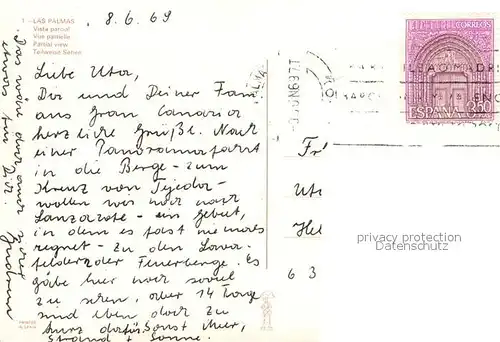 1 - LAS PALMAS
Vista parcial
Vue partielle
Partial view
Teilweise Sehen
8.6.69
Liebe Uta,
Dir und Deiner Fam.
aus Gran Canaria
herzliche Grüße. Nach
einer Panoramafahrt
in die Berge - zum
Kreuz von Tejeda -
wollen wir noch nach
Lanzarote - ein Gebiet,
in dem es fast niemals
regnet - zu den Lava-
feldern der Feuerberge. Es
gäbe hier noch soviel
zu sehen, aber 14 Tage
sind eben doch zu
kurz dafür. Sonst Meer,
Strand + Sonne.
Das wäre doch auch
etwas für Dich.
CORREOS
ESPAÑA 3,50
Fr
Ut
Hel
6 3
privacy protection
Datenschutz